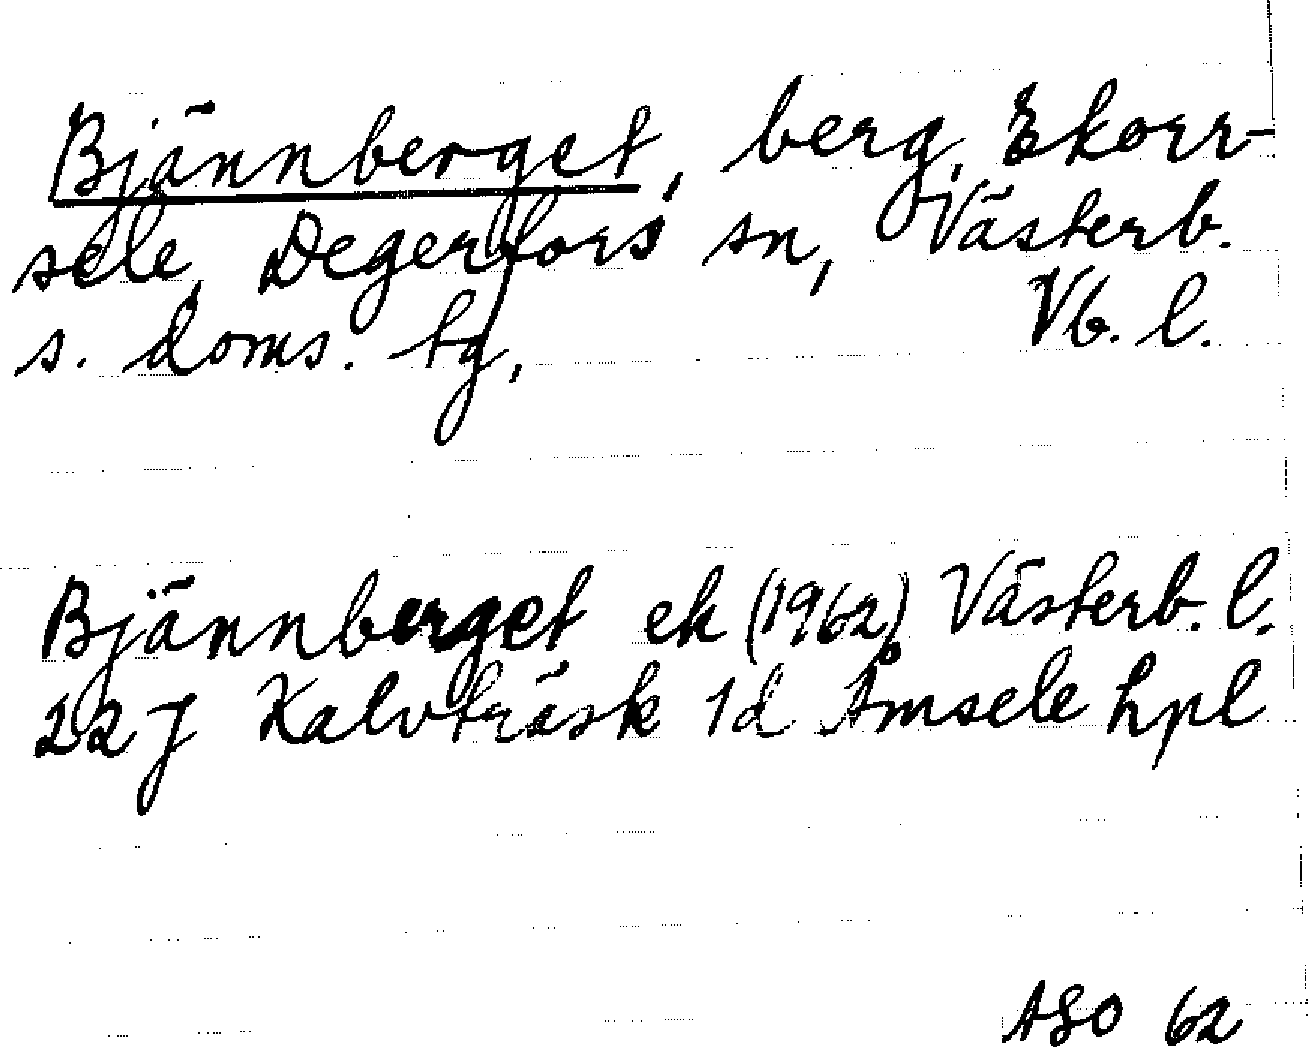 Bjännberget, berg, Ekorr-
sele, Degerfors sn, Västerb.
s. doms. tg, Vb. l.
Bjännberget ek (1962) Västerb. l.
22 J Kalvträsk 1d Åmsele hpl
ASO 62